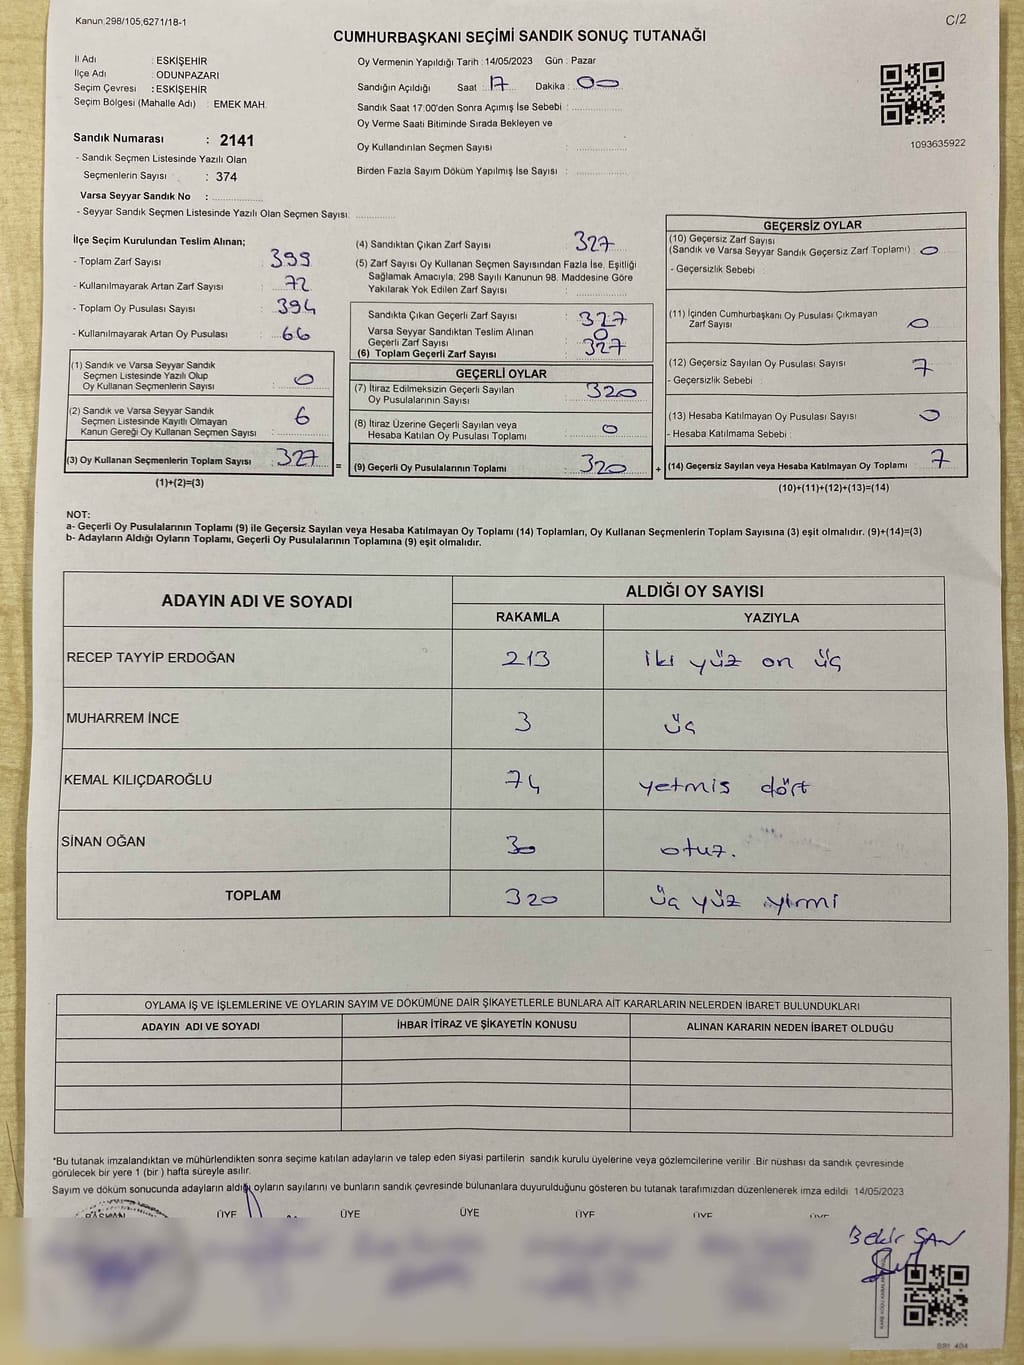 Kanun.298/105,6271/18-1
C/2
CUMHURBAŞKANI SEÇİMİ SANDIK SONUÇ TUTANAĞI
İl Adı : ESKİŞEHİR
İlçe Adı : ODUNPAZARI
Seçim Çevresi : ESKİŞEHİR
Seçim Bölgesi (Mahalle Adı) : EMEK MAH.
Sandık Numarası : 2141
- Sandık Seçmen Listesinde Yazılı Olan
Seçmenlerin Sayısı : 374
Varsa Seyyar Sandık No :
- Seyyar Sandık Seçmen Listesinde Yazılı Olan Seçmen Sayısı.
Oy Vermenin Yapıldığı Tarih : 14/05/2023 Gün : Pazar
Sandığın Açıldığı Saat : 17 Dakika : 00
Sandık Saat 17:00'den Sonra Açımış İse Sebebi :
Oy Verme Saati Bitiminde Sırada Bekleyen ve
Oy Kullandırılan Seçmen Sayısı :
Birden Fazla Sayım Döküm Yapılmış İse Sayısı :
1093635922
İlçe Seçim Kurulundan Teslim Alınan;
- Toplam Zarf Sayısı : 399
- Kullanılmayarak Artan Zarf Sayısı : 72
- Toplam Oy Pusulası Sayısı : 394
- Kullanılmayarak Artan Oy Pusulası : 66
(1) Sandık ve Varsa Seyyar Sandık
Seçmen Listesinde Yazılı Olup
Oy Kullanan Seçmenlerin Sayısı : 0
(2) Sandık ve Varsa Seyyar Sandık
Seçmen Listesinde Kayıtlı Olmayan
Kanun Gereği Oy Kullanan Seçmen Sayısı : 6
(3) Oy Kullanan Seçmenlerin Toplam Sayısı : 327 =
(1)+(2)=(3)
(4) Sandıktan Çıkan Zarf Sayısı : 327
(5) Zarf Sayısı Oy Kullanan Seçmen Sayısından Fazla İse, Eşitliği
Sağlamak Amacıyla, 298 Sayılı Kanunun 98. Maddesine Göre
Yakılarak Yok Edilen Zarf Sayısı :
Sandıkta Çıkan Geçerli Zarf Sayısı : 327
Varsa Seyyar Sandıktan Teslim Alınan
Geçerli Zarf Sayısı : 0
(6) Toplam Geçerli Zarf Sayısı : 327
GEÇERLİ OYLAR
(7) İtiraz Edilmeksizin Geçerli Sayılan
Oy Pusulalarının Sayısı : 320
(8) İtiraz Üzerine Geçerli Sayılan veya
Hesaba Katılan Oy Pusulası Toplamı : 0
(9) Geçerli Oy Pusulalarının Toplamı : 320 +
GEÇERSİZ OYLAR
(10) Geçersiz Zarf Sayısı
(Sandık ve Varsa Seyyar Sandık Geçersiz Zarf Toplamı) : 0
- Geçersizlik Sebebi :
(11) İçinden Cumhurbaşkanı Oy Pusulası Çıkmayan
Zarf Sayısı : 0
(12) Geçersiz Sayılan Oy Pusulası Sayısı : 7
- Geçersizlik Sebebi :
(13) Hesaba Katılmayan Oy Pusulası Sayısı : 0
- Hesaba Katılmama Sebebi :
(14) Geçersiz Sayılan veya Hesaba Katılmayan Oy Toplamı : 7
(10)+(11)+(12)+(13)=(14)
NOT:
a- Geçerli Oy Pusulalarının Toplamı (9) ile Geçersiz Sayılan veya Hesaba Katılmayan Oy Toplamı (14) Toplamları, Oy Kullanan Seçmenlerin Toplam Sayısına (3) eşit olmalıdır. (9)+(14)=(3)
b- Adayların Aldığı Oyların Toplamı, Geçerli Oy Pusulalarının Toplamına (9) eşit olmalıdır.
ADAYIN ADI VE SOYADI ALDIĞI OY SAYISI
RAKAMLA YAZIYLA
RECEP TAYYİP ERDOĞAN 213 iki yüz on üç
MUHARREM İNCE 3 üç
KEMAL KILIÇDAROĞLU 74 yetmis dört
SİNAN OĞAN 30 otuz.
TOPLAM 320 üç yüz yirmi
OYLAMA İŞ VE İŞLEMLERİNE VE OYLARIN SAYIM VE DÖKÜMÜNE DAİR ŞİKAYETLERLE BUNLARA AİT KARARLARIN NELERDEN İBARET BULUNDUKLARI
ADAYIN ADI VE SOYADI İHBAR İTİRAZ VE ŞİKAYETİN KONUSU ALINAN KARARIN NEDEN İBARET OLDUĞU
*Bu tutanak imzalandıktan ve mühürlendikten sonra seçime katılan adayların ve talep eden siyasi partilerin sandık kurulu üyelerine veya gözlemcilerine verilir .Bir nüshası da sandık çevresinde
görülecek bir yere 1 (bir ) hafta süreyle asılır.
Sayım ve döküm sonucunda adayların aldığı oyların sayılarını ve bunların sandık çevresinde bulunanlara duyurulduğunu gösteren bu tutanak tarafımızdan düzenlenerek imza edildi. 14/05/2023
BAŞKAN ÜYE ÜYE ÜYE ÜYE ÜYE ÜYE
Bekir ŞAN